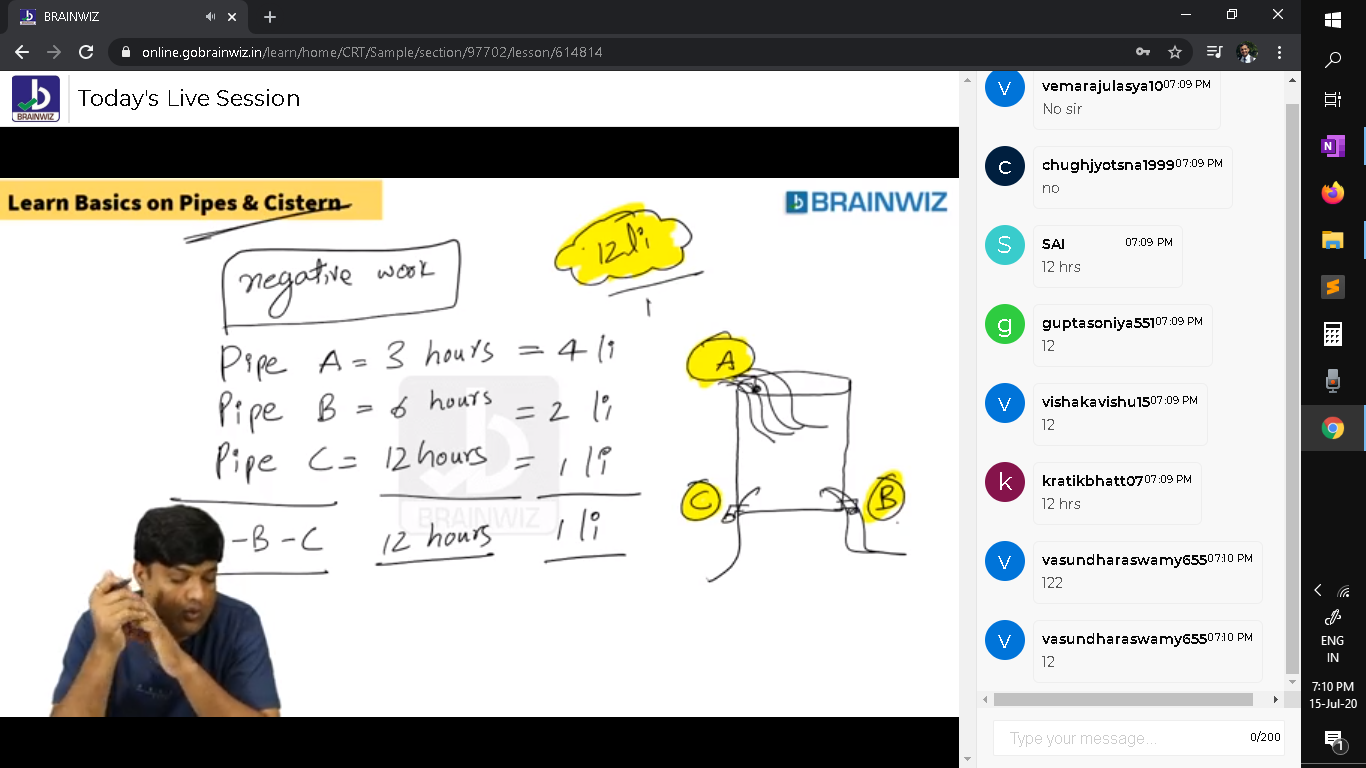 BRAINWIZ
online.gobrainwiz.in/learn/home/CRT/Sample/section/97702/lesson/614814
BRAINWIZ
Today's Live Session
Learn Basics on Pipes & Cistern
BRAINWIZ
negative work
12 li
1
Pipe A = 3 hours = 4 li
Pipe B = 6 hours = 2 li
Pipe C = 12 hours = 1 li
-B-C 12 hours 1 li
BRAINWIZ
A
C
B
V
vemarajulasya10 07:09 PM
No sir
c
chughjyotsna1999 07:09 PM
no
S
SAI 07:09 PM
12 hrs
g
guptasoniya551 07:09 PM
12
V
vishakavishu15 07:09 PM
12
k
kratikbhatt07 07:09 PM
12 hrs
V
vasundharaswamy655 07:10 PM
122
V
vasundharaswamy655 07:10 PM
12
Type your message...
0/200
N
S
ENG
IN
7:10 PM
15-Jul-20
1